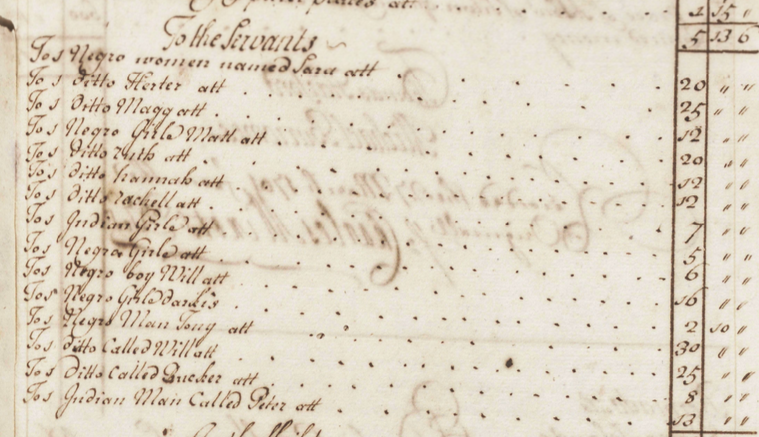 1 15 "
To the Servants 5 13 6
To 1 Negro women named Sara att 20 " "
To 1 ditto Hester att 25 " "
To 1 Ditto Magg att 12 " "
To 1 Negro Girle Matt att 20 " "
To 1 ditto ruth att 12 " "
To 1 ditto hannah att 12 " "
To 1 ditto rachell att 7 " "
To 1 Indian Girle att 5 " "
To 1 Negro Girle att 6 " "
To 1 Negro boy Will att 16 " "
To 1 Negro Girle darkis 2 10 "
To 1 Negro Man Tony att 30 " "
To 1 ditto Called Will att 25 " "
To 1 Ditto Called att 8 " "
To 1 Indian Man Called Peter att 13 " "